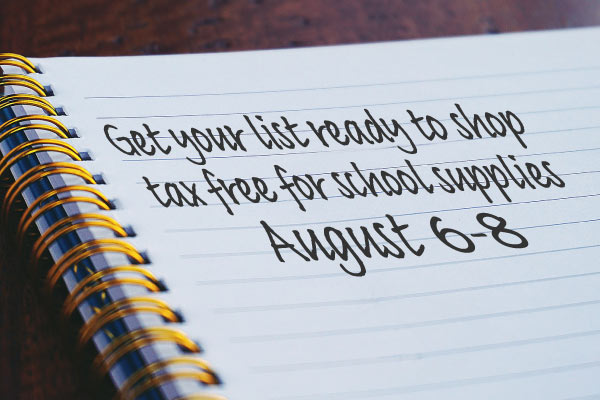 Get your list ready to shop
tax free for school supplies
August 6-8